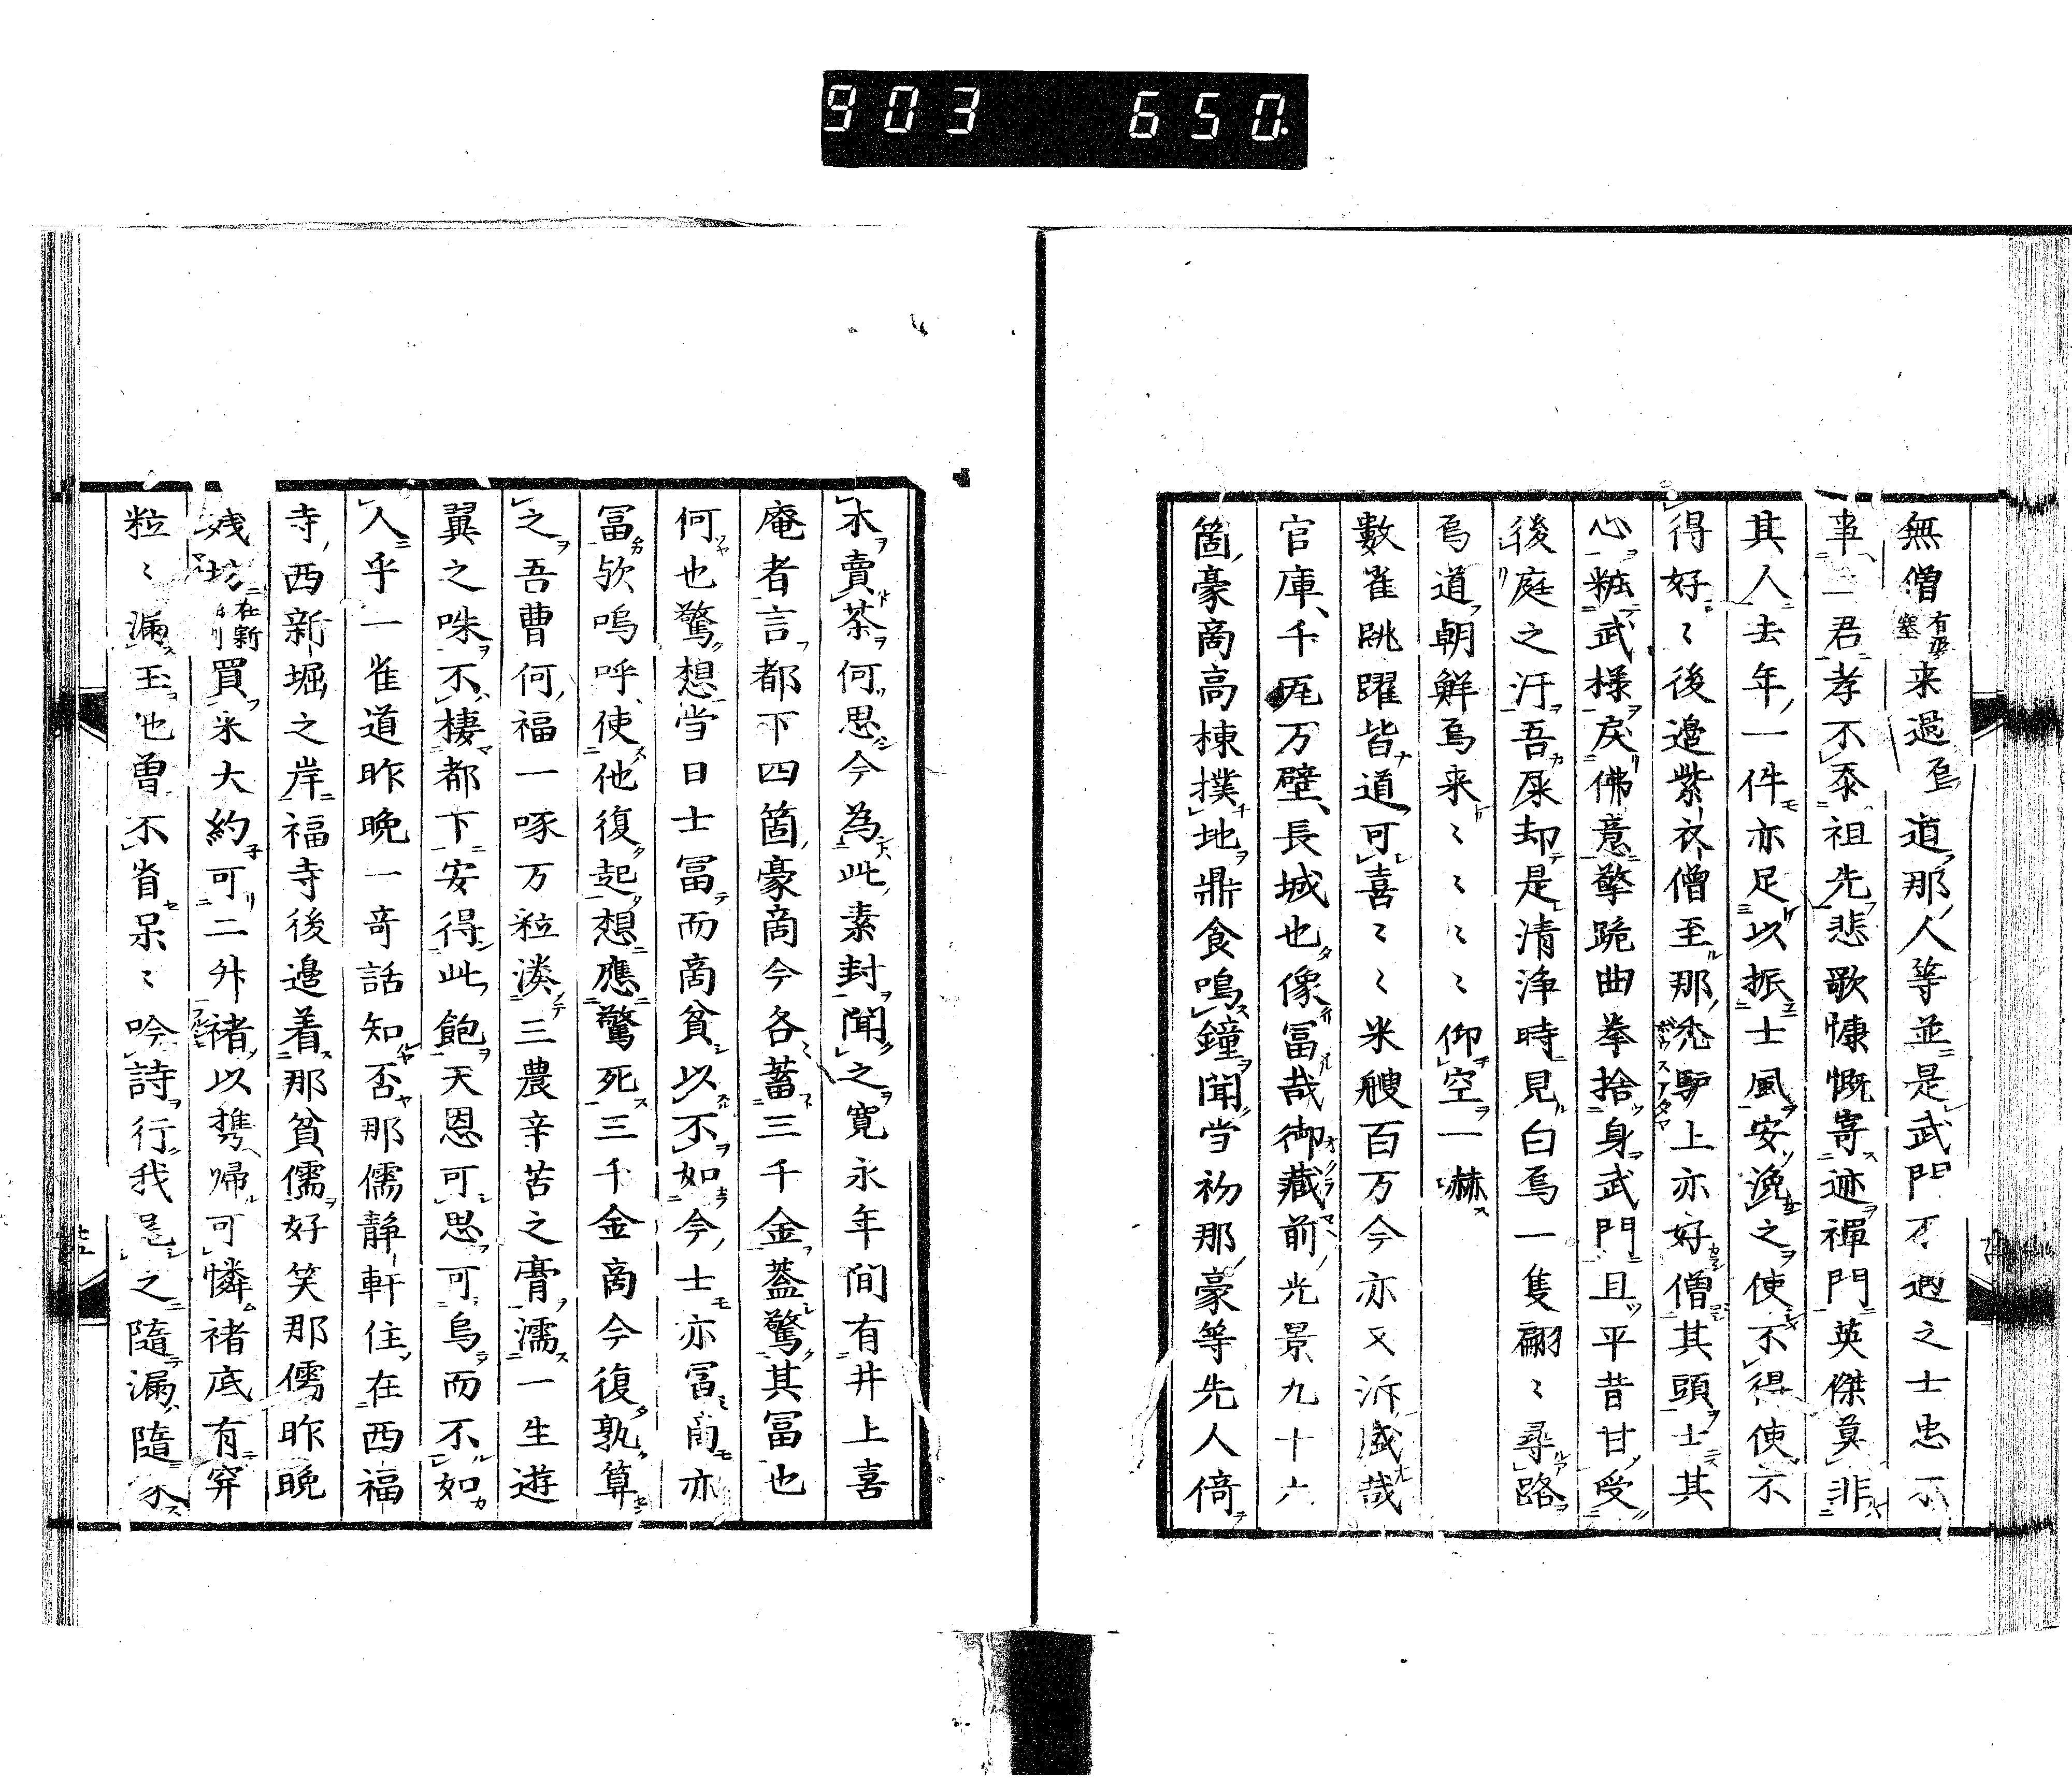 903 650.
無僧来過烏道那人等並是武門不遇之士忠不
事一君孝不忝祖先悲歌慷慨寄迹禅門英傑莫非
其人去年一件亦足以振士風安浼之使不得使不
得好〻後邉紫衣僧至那禿驴上亦好僧其頭士其
心粧武様戻佛意擎跪曲拳捨身武門且平昔甘受
後庭之汙吾屎却是清浄時見白烏一隻翩〻尋路
烏道朝鮮烏来〻〻〻〻仰空一嚇
數雀跳躍皆道可喜〻〻米艘百万今亦又泝盛哉
官庫千瓦万壁長城也像冨哉御藏前光景九十六
箇豪商高棟撲地鼎食鳴鐘聞当初那豪等先人倚
木賣茶何思今為此素封聞之寛永年间有井上喜
庵者言都下四箇豪商今各蓄三千金蓋驚其冨也
何也驚想当日士冨而商貧以不如今士亦冨商亦
冨欤嗚呼使他復起想應驚死三千金商今復孰算
之吾曹何福一啄万粒湊三農辛苦之膏濡一生遊
翼之咮不棲都下安得此飽天恩可思可烏而不如
人乎一雀道昨晚一奇話知否那儒静軒住在西福
寺西新堀之岸福寺後邉着那貧儒好笑那儒昨晚
残坊買米大約可二升禇以携歸可憐禇底有穿
粒〻漏玉他曽不省呆〻吟詩行我尾之隨漏隨